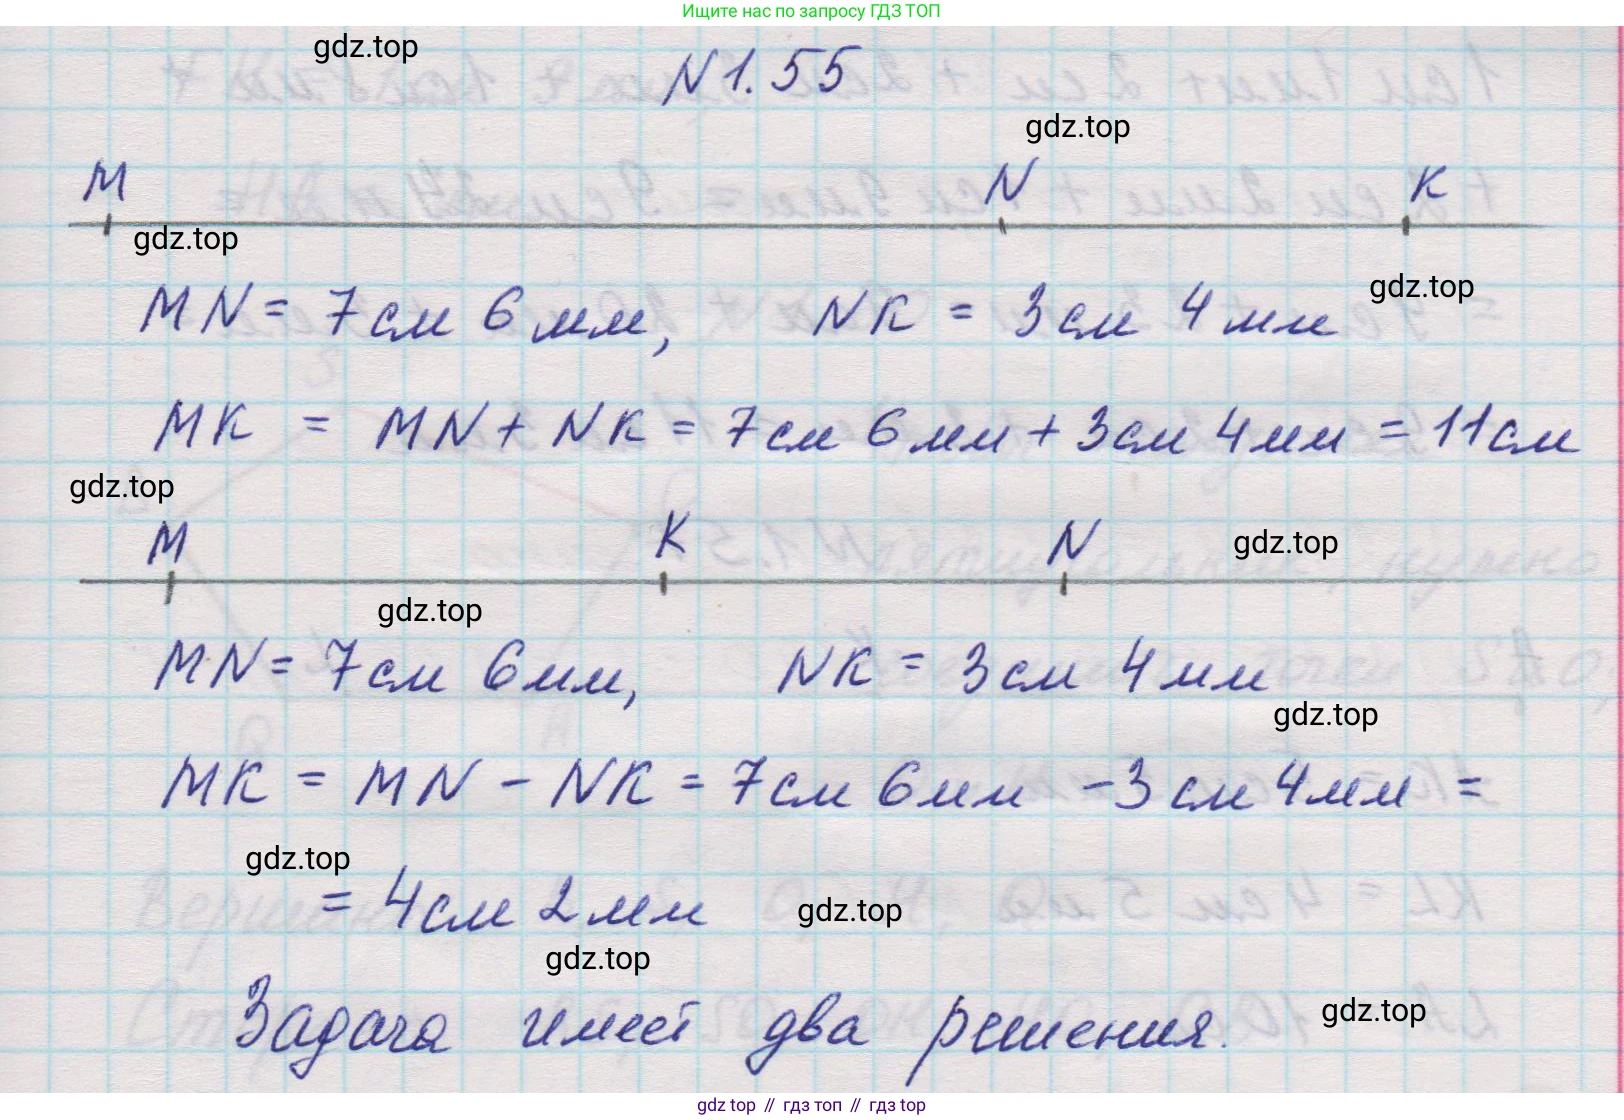 Ищите нас по запросу ГДЗ ТОП
gdz.top
N 1.55
gdz.top
M N K
gdz.top
gdz.top
MN = 7 см 6 мм, NK = 3 см 4 мм
MK = MN + NK = 7 см 6 мм + 3 см 4 мм = 11 см
gdz.top
M K N
gdz.top
gdz.top
MN = 7 см 6 мм, NK = 3 см 4 мм
gdz.top
MK = MN - NK = 7 см 6 мм - 3 см 4 мм =
gdz.top
= 4 см 2 мм
gdz.top
gdz.top
Задача имеет два решения.
gdz.top
gdz top // гдз топ // gdz top